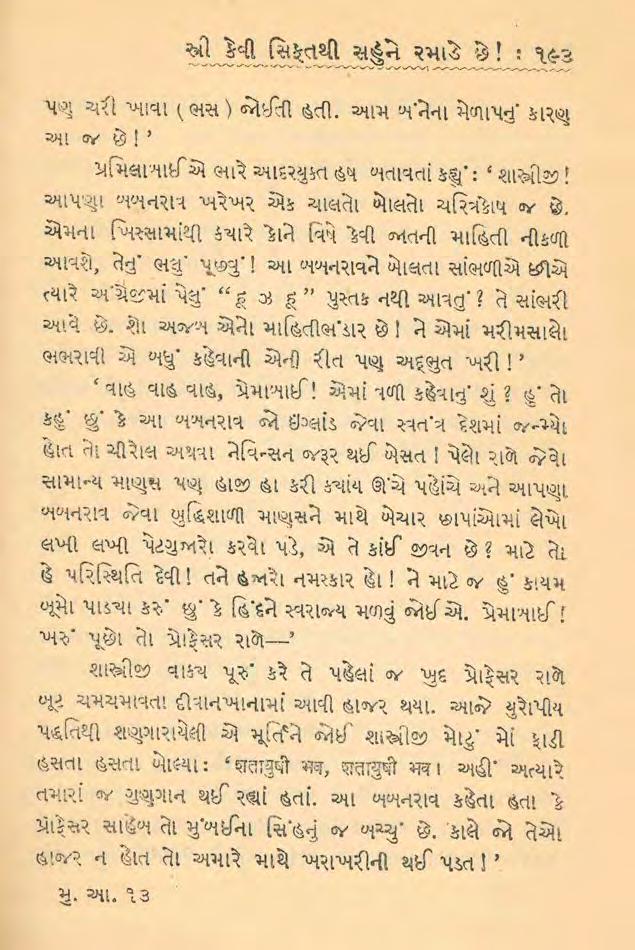 સ્ત્રી કેવી સિફતથી સહુને રમાડે છે! : ૧૯૩
પણ ચરી ખાવા ( ભસ ) જોઈતી હતી. આમ બંનેના મેળાપનું કારણ
આ જ છે!’
પ્રમિલાબાઈ એ ભારે આદરયુક્ત હર્ષ બતાવતાં કહ્યું : ‘ શાસ્ત્રીજી!
આપણા બબનરાવ ખરેખર એક ચાલતો બોલતો ચરિત્રકોષ જ છે.
એમના ખિસ્સામાંથી ક્યારે કોને વિષે કેવી જાતની માહિતી નીકળી
આવશે, તેનું ભલું પૂછવું! આ બબનરાવને બોલતા સાંભળીએ છીએ
ત્યારે અંગ્રેજીમાં પેલું “ હૂ ઝ હૂ ” પુસ્તક નથી આવતું? તે સાંભરી
આવે છે. શો અજબ એનો માહિતીભંડાર છે! ને એમાં મરીમસાલો
ભભરાવી એ બધું કહેવાની એની રીત પણ અદ્દભુત ખરી!’
‘ વાહ વાહ વાહ, પ્રેમાબાઈ! એમાં વળી કહેવાનું શું? હું તો
કહું છું કે આ બબનરાવ જો ઇંગ્લાંડ જેવા સ્વતંત્ર દેશમાં જન્મ્યો
હોત તો ચીરોલ અથવા નેવિન્સન જરૂર થઈ બેસત! પેલો રાળે જેવો
સામાન્ય માણસ પણ હાજી હા કરી ક્યાંય ઊંચે પહોંચે અને આપણા
બબનરાવ જેવા બુદ્ધિશાળી માણસને માથે બેચાર છાપાંઓમાં લેખો
લખી લખી પેટગુજારો કરવો પડે, એ તે કાંઈ જીવન છે? માટે તો
હે પરિસ્થિતિ દેવી! તને હજારો નમસ્કાર હો! ને માટે જ હું કાયમ
બૂમો પાડ્યા કરું છું કે હિંદને સ્વરાજ્ય મળવું જોઈએ. પ્રેમાબાઈ!
ખરું પૂછો તો પ્રોફેસર રાળે—’
શાસ્ત્રીજી વાક્ય પૂરું કરે તે પહેલાં જ ખુદ પ્રોફેસર રાળે
બૂટ ચમચમાવતા દીવાનખાનામાં આવી હાજર થયા. આજે યુરોપીય
પદ્ધતિથી શણગારાયેલી એ મૂર્તિને જોઈ શાસ્ત્રીજી મોટું મોં ફાડી
હસતા હસતા બોલ્યા : ‘ शतायुषी भव, शतायुषी भव। અહીં અત્યારે
તમારાં જ ગુણગાન થઈ રહ્યાં હતાં. આ બબનરાવ કહેતા હતા કે
પ્રોફેસર સાહેબ તો મુંબઈના સિંહનું જ બચ્ચું છે. કાલે જો તેઓ
હાજર ન હોત તો અમારે માથે ખરાખરીની થઈ પડત!’
મુ. આ. ૧૩